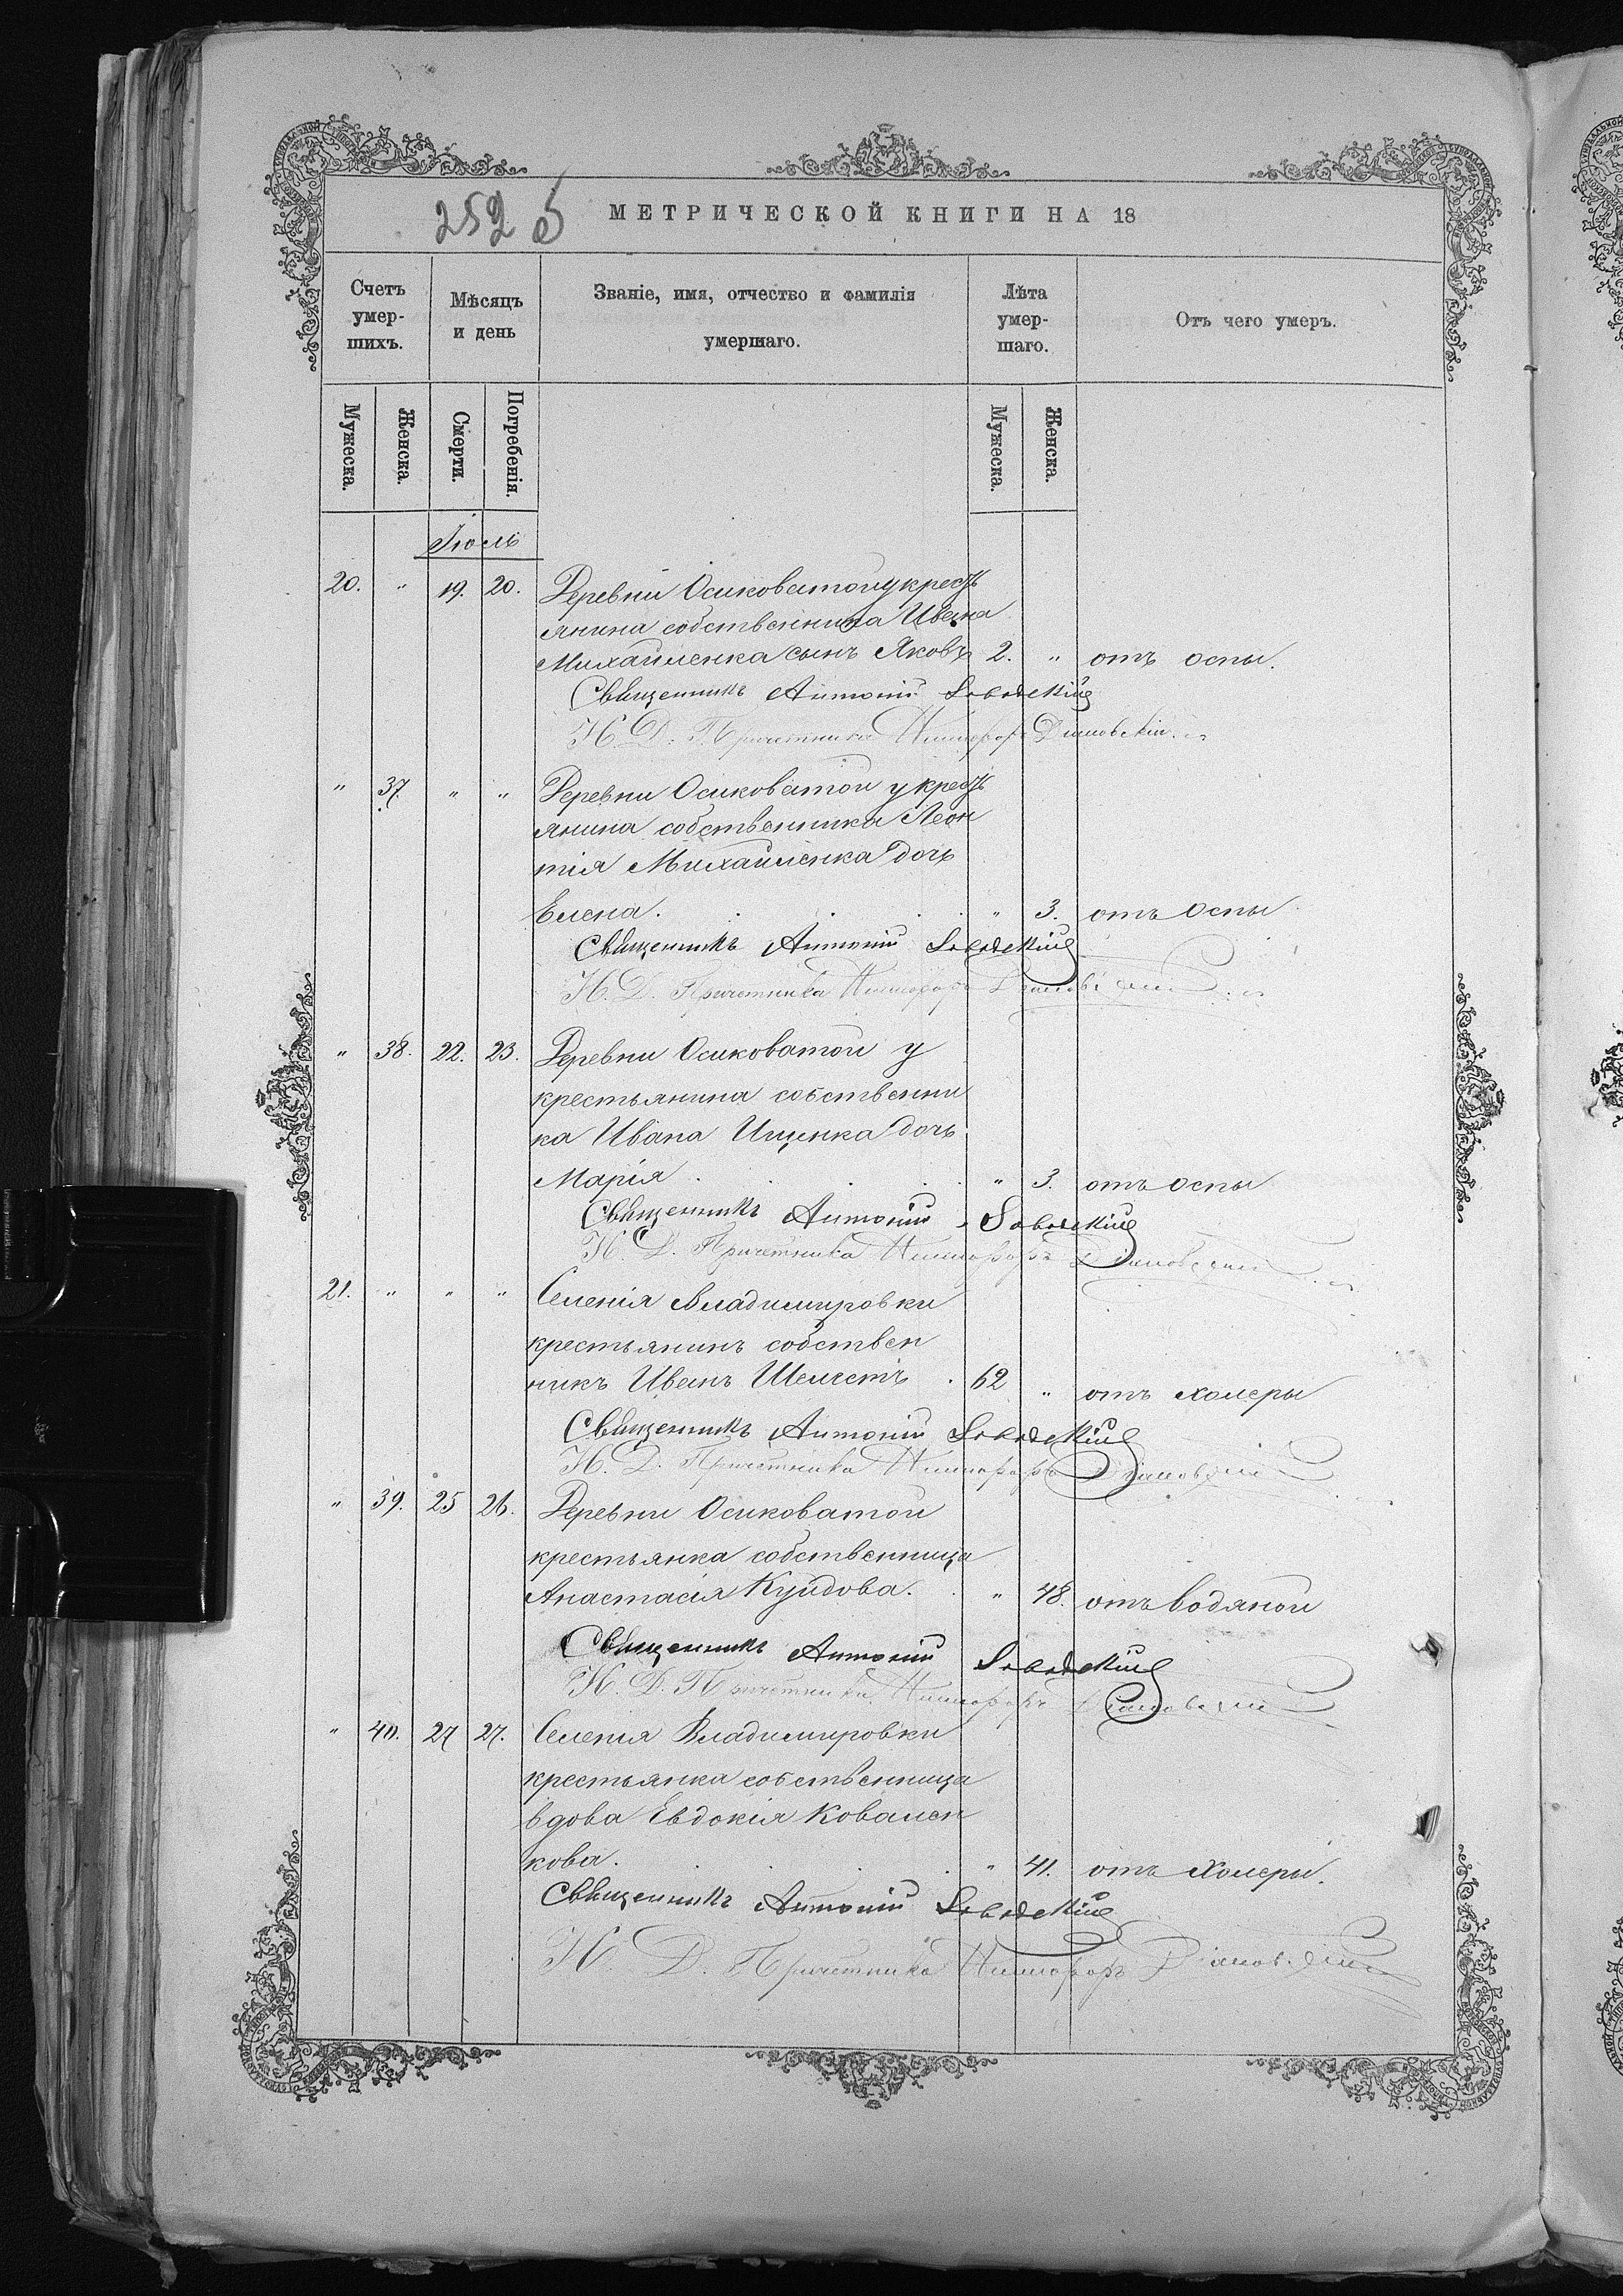 252 б
МЕТРИЧЕСКОЙ КНИГИ НА 18
Счетъ умер-шихъ.
Мѣсяцъ и день
Званіе, имя, отчество и фамилія умершаго.
Лѣта умер-шаго.
Отъ чего умеръ.
Мужеска.
Женска.
Смерти.
Погребенія.
Мужеска.
Женска.
Іюль
20. " 19. 20. Деревни Осиковатой у крестъ
янина собственника Ивана
Михайленка сынъ Яковъ 2. " отъ оспы.
Священникъ Антоній
И. Д. Причетника Никифоръ
" 37. " " Деревни Осиковатой у крестъ
янина собственника Леон
тія Михайленка дочь
Елена. " 3. отъ оспы
Священникъ Антоній
И. Д. Причетника Никифоръ
" 38. 22. 23. Деревни Осиковатой у
крестьянина собственни
ка Ивана Ищенка дочь
Марія " 3. отъ оспы
Священникъ Антоній
И. Д. Причетника Никифоръ
21. " " " Селенія Владимировки
крестьянинъ собствен
никъ Иванъ Шелестъ 62 " отъ холеры
Священникъ Антоній
И. Д. Причетника Никифоръ
" 39. 25 26. Деревни Осиковатой
крестьянка собственница
Анастасія " 48. отъ водяной
Священникъ Антоній
И. Д. Причетника Никифоръ
" 40. 27 27. Селенія Владимировки
крестьянка собственница
вдова Евдокія Ковален
кова. " 41. отъ холеры.
Священникъ Антоній
И. Д. Причетника Никифоръ